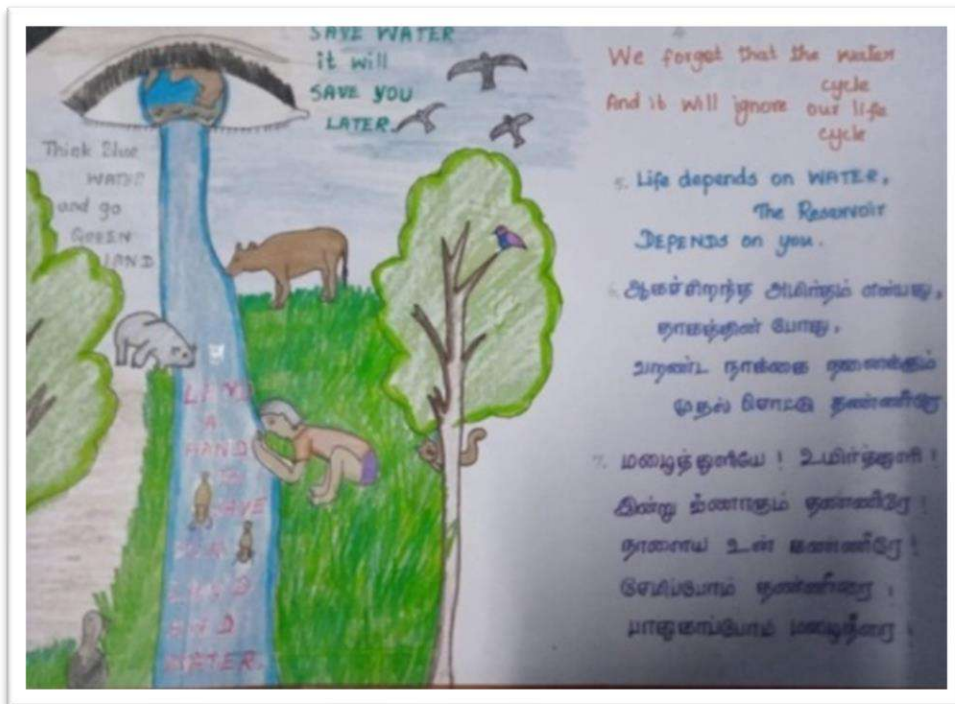 SAVE WATER
it will
SAVE YOU
LATER.
Think Blue
WATER
and go
GREEN
LAND
LEND
A
HAND
TO
SAVE
LAND
AND
WATER.
We forget that the water
cycle
And it will ignore our life
cycle
5. Life depends on WATER,
The Reservoir
DEPENDS on you.
6. ஆகச்சிறந்த அமிர்தம் என்பது,
தாகத்தின் போது,
வறண்ட நாக்கை நனைக்கும்
முதல் சொட்டு தண்ணீரே
7. மழைத்துளியே ! உயிர்த்துளி !
இன்று வீணாகும் தண்ணீரே !
நாளைய உன் கண்ணீரே !
சேமிப்போம் தண்ணீரை !
பாதுகாப்போம் மழைநீரை !